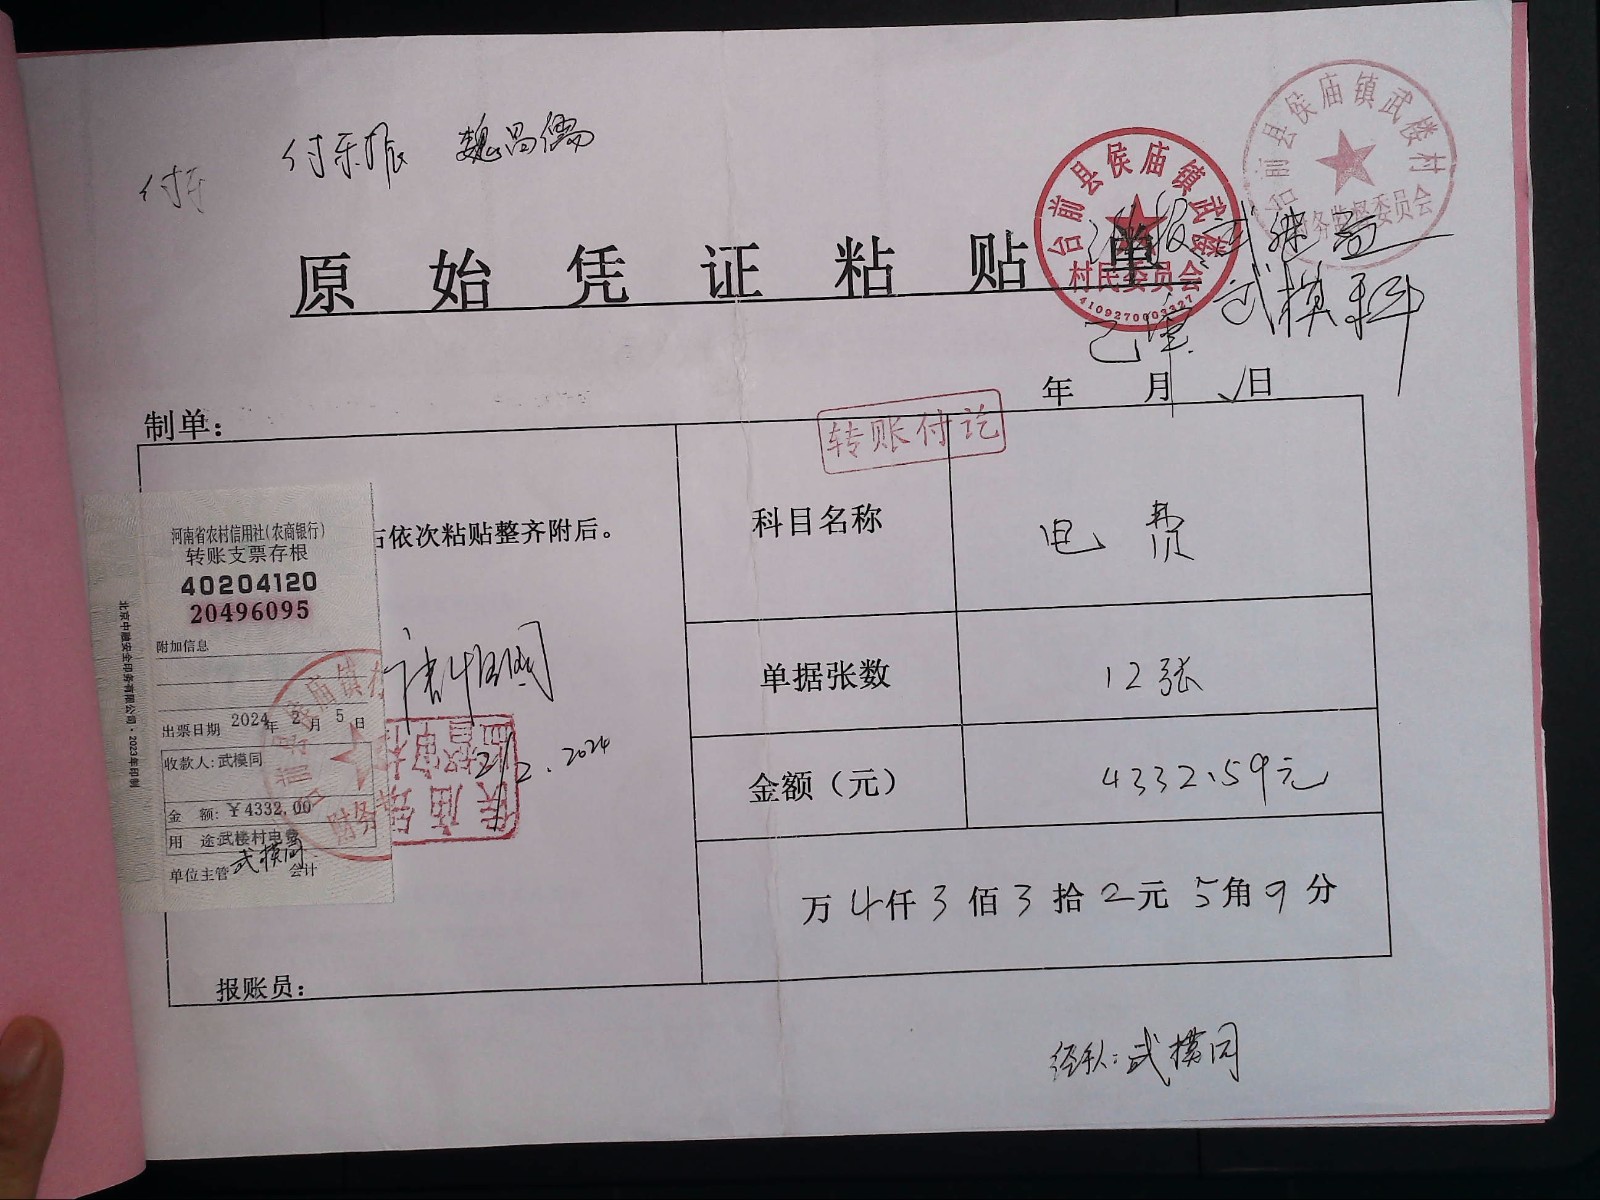 付东振 魏昌儒
台前县侯庙镇武楼村
财务监督委员会
台前县侯庙镇武楼
村民委员会
4109270003327
原始凭证粘贴单
武继孟
已审 武模科
年 月 日
制单：
转账付讫
右依次粘贴整齐附后。
河南省农村信用社(农商银行)
转账支票存根
40204120
20496095
附加信息
出票日期 2024年 2月 5日
收款人: 武模同
金 额: ￥4332.00
用 途: 武楼村电费
单位主管 武模同 会计
北京中融安全印务有限公司·2023年印制
侯庙镇
2/2.2024
科目名称 电费
单据张数 12张
金额（元） 4332.59元
万4仟3佰3拾2元5角9分
报账员：
经手人：武模同